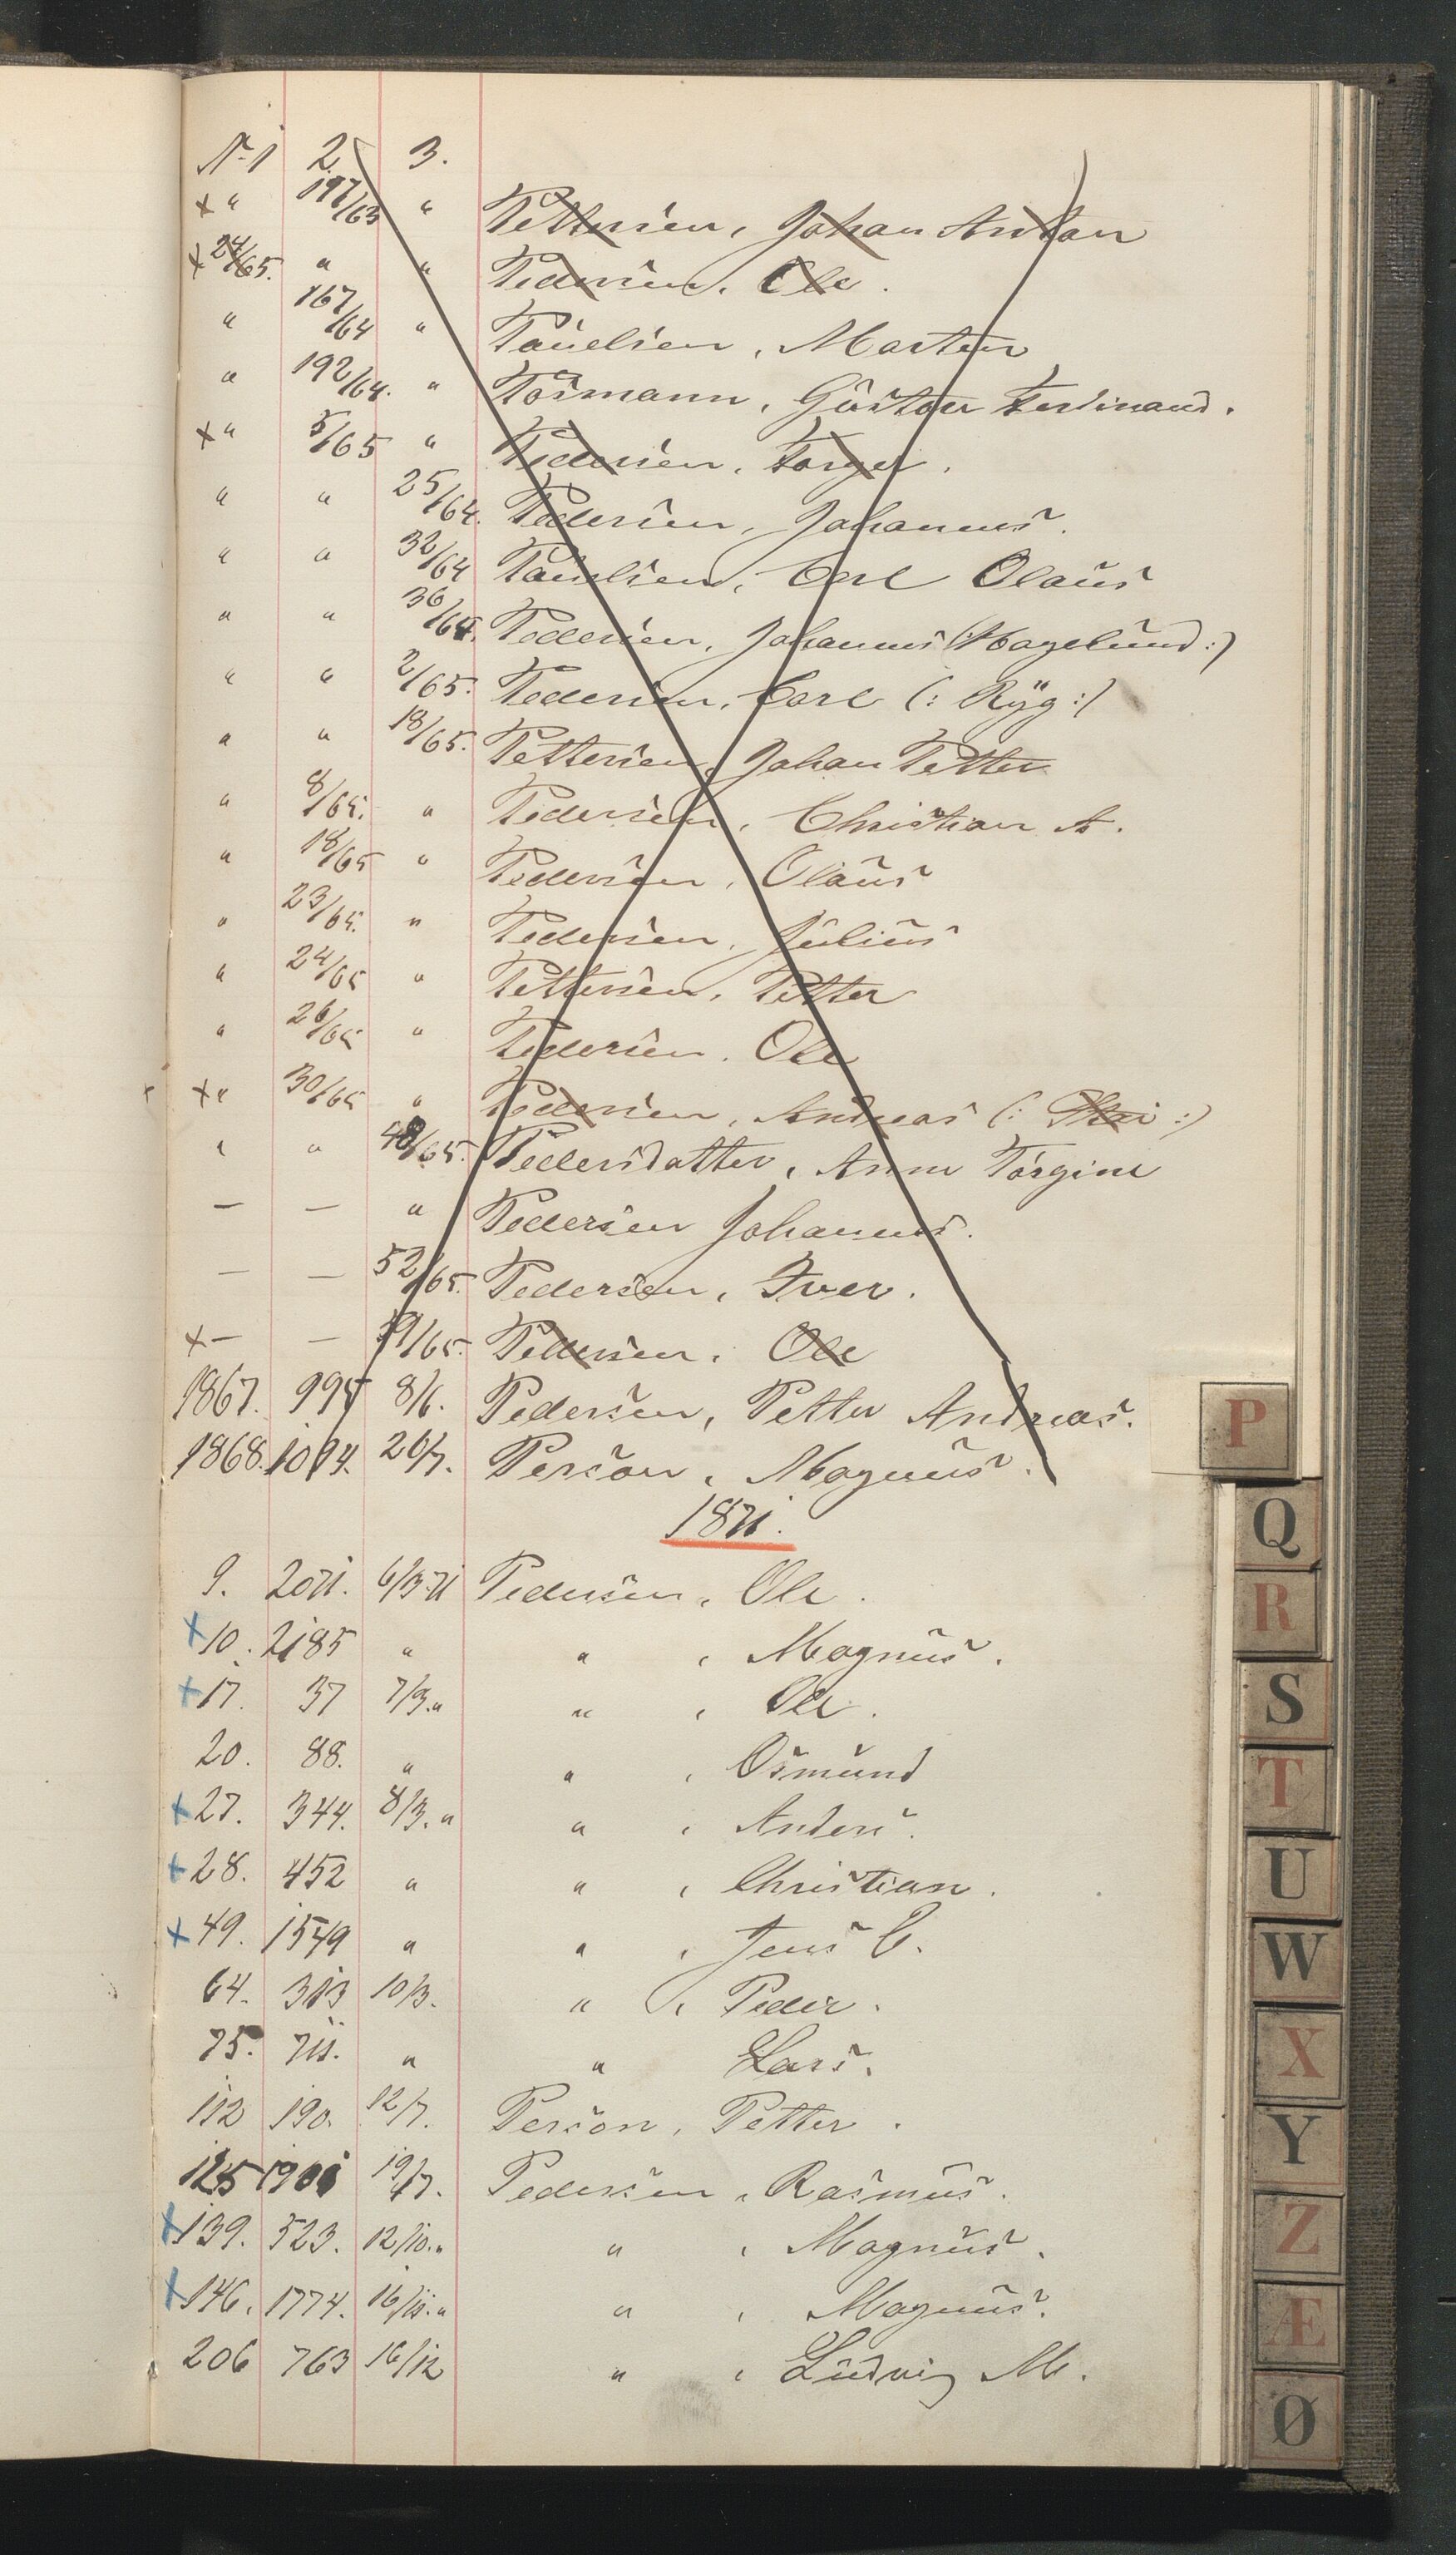 No 1 2. 3.
× " 197/63 " Pettersen, Johan Anton
× 24/65. " " Pedersen, Ole.
" 167/64 " Paulsen, Marten
" 192/64. " Posmann, Gustav Ferdinand.
× " 5/65 " Pedersen, Torger.
" " 25/64. Pedersen, Johannes.
" " 32/64 Paulsen, Carl Olaus
" " 36/64. Pedersen, Johannes (: Hagelund :)
" " 2/65. Pedersen, Carl (: Ryg :)
" " 18/65. Pettersen, Johan Petter
" 8/65. " Pedersen, Christian A.
" 18/65 " Pedersen, Olaus
" 23/65. " Pedersen, Julius
" 24/65 " Pettersen, Petter
" 26/65 " Pedersen, Ole
× " 30/65 " Pedersen, Andreas (: :)
" " 48/65. Pedersdatter, Anne Torgine
— — " Pedersen Johannes.
— — 52/65. Pedersen, Iver.
× — — /65. Pedersen, Ole
1867. 995 8/6. Pedersen, Petter Andreas.
1868. 1094. 20/7. Person, Magnus.
1871.
9. 2071. 6/3-71 Pedersen, Ole.
× 10. 2185 " " , Magnus.
× 17. 37 7/3. " " , Ole.
20. 88. " " , Osmund
× 27. 344. 8/3. " " , Anders.
× 28. 452 " " , Christian.
× 49. 1549 " " , Jens C.
64. 313 10/3. " , Peder.
75. 711. " " Lars.
112 190. 12/7. Person, Petter.
125 1901 19/7. Pedersen, Rasmus.
× 139. 523. 12/10. " " , Magnus.
× 146. 1774. 16/11. " " , Magnus.
206 763 16/12 " , Ludvig M.
P
Q
R
S
T
U
W
X
Y
Z
Æ
Ø